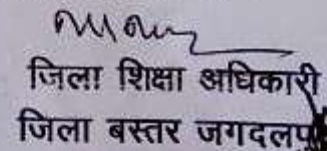 जिला शिक्षा अधिकारी
जिला बस्तर जगदलपु